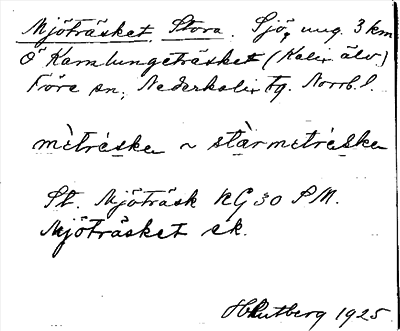 Mjöträsket, Stora. Sjö, ung. 3 km
Ö Kamlungeträsket (Kalix älv)
Töre sn, Nederkalix tg. Norrb. l.
mètréskₑ ~ stàrmetréskₑ
St. Mjöträsk RG 30 SM.
Mjöträsket ek.
H Rutberg 1925